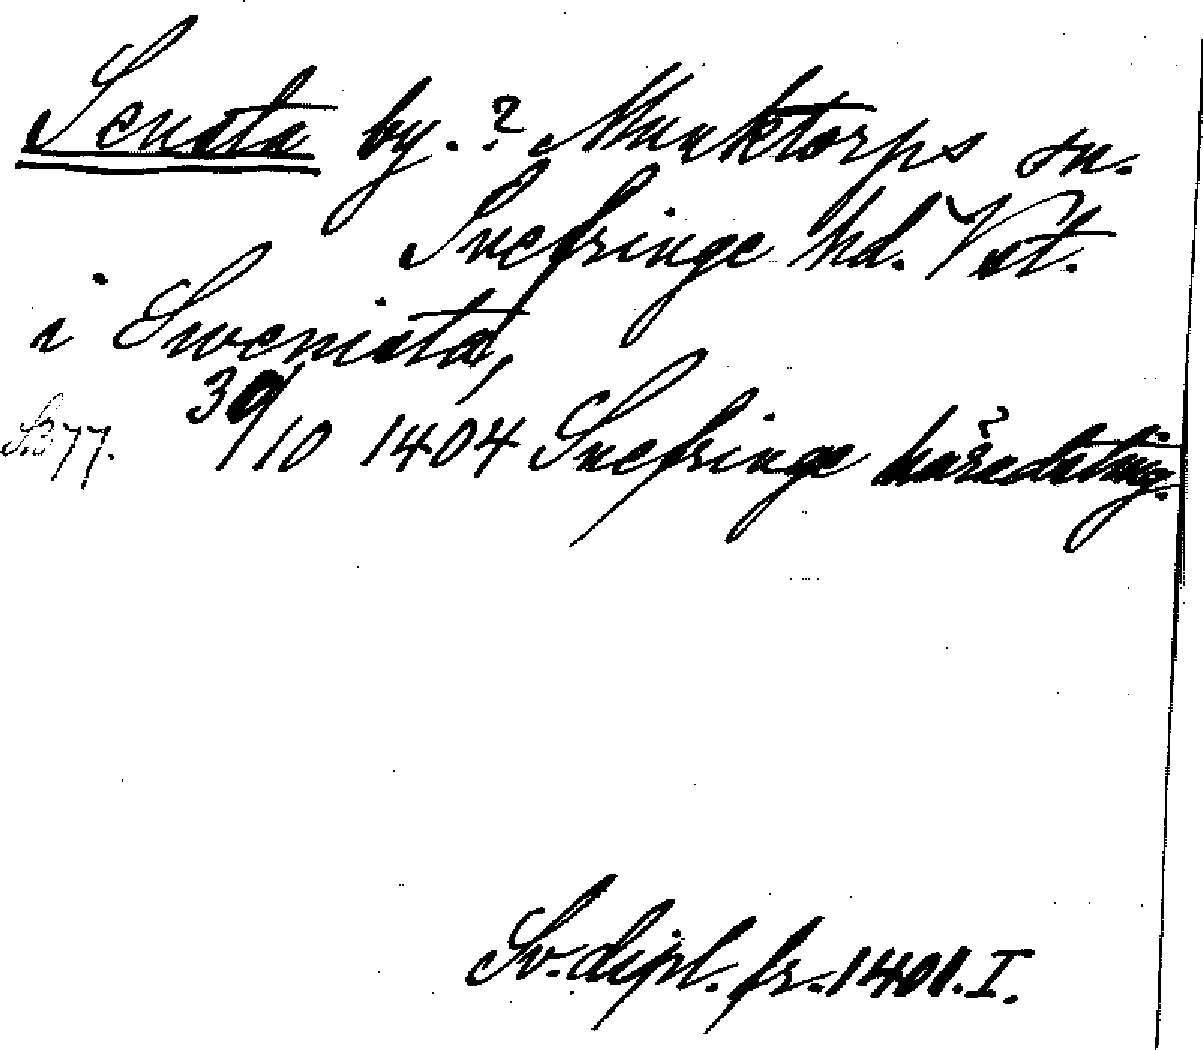 Sensta by.? Munktorps sn.
Snefringe hd. Vstl.
i Swenista,
S.377. 30/10 1404 Snefringe häradsting.
Sv. dipl. fr. 1401. I.